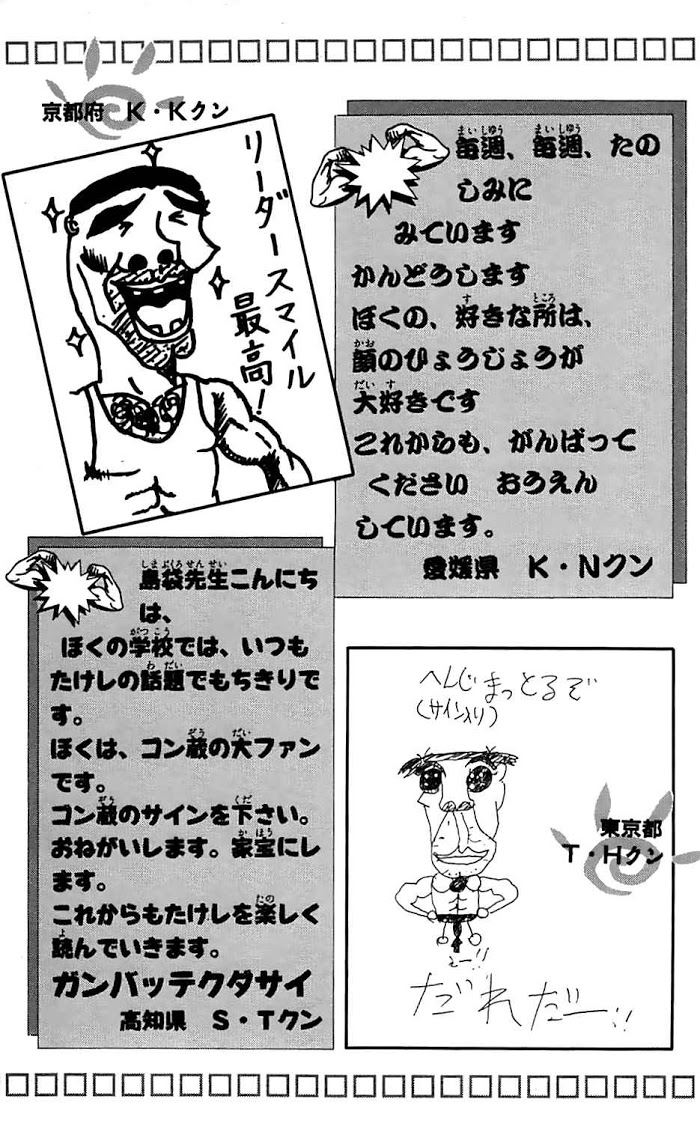 京都府 K・Kクン
リーダースマイル
最高!
毎週、毎週、たの
しみに
みています
かんどうします
ぼくの、好きな所は、
顔のひょうじょうが
大好きです
これからも、がんばって
ください おうえん
しています。
愛媛県 K・Nクン
島袋先生こんにち
は、
ぼくの学校では、いつも
たけしの話題でもちきりで
す。
ぼくは、ゴン蔵の大ファン
です。
ゴン蔵のサインを下さい。
おねがいします。家宝にし
ます。
これからもたけしを楽しく
読んでいきます。
ガンバッテクダサイ
高知県 S・Tクン
へんじまっとるぞ
(サイン入り)
東京都
T・Hクン
だれだー!!